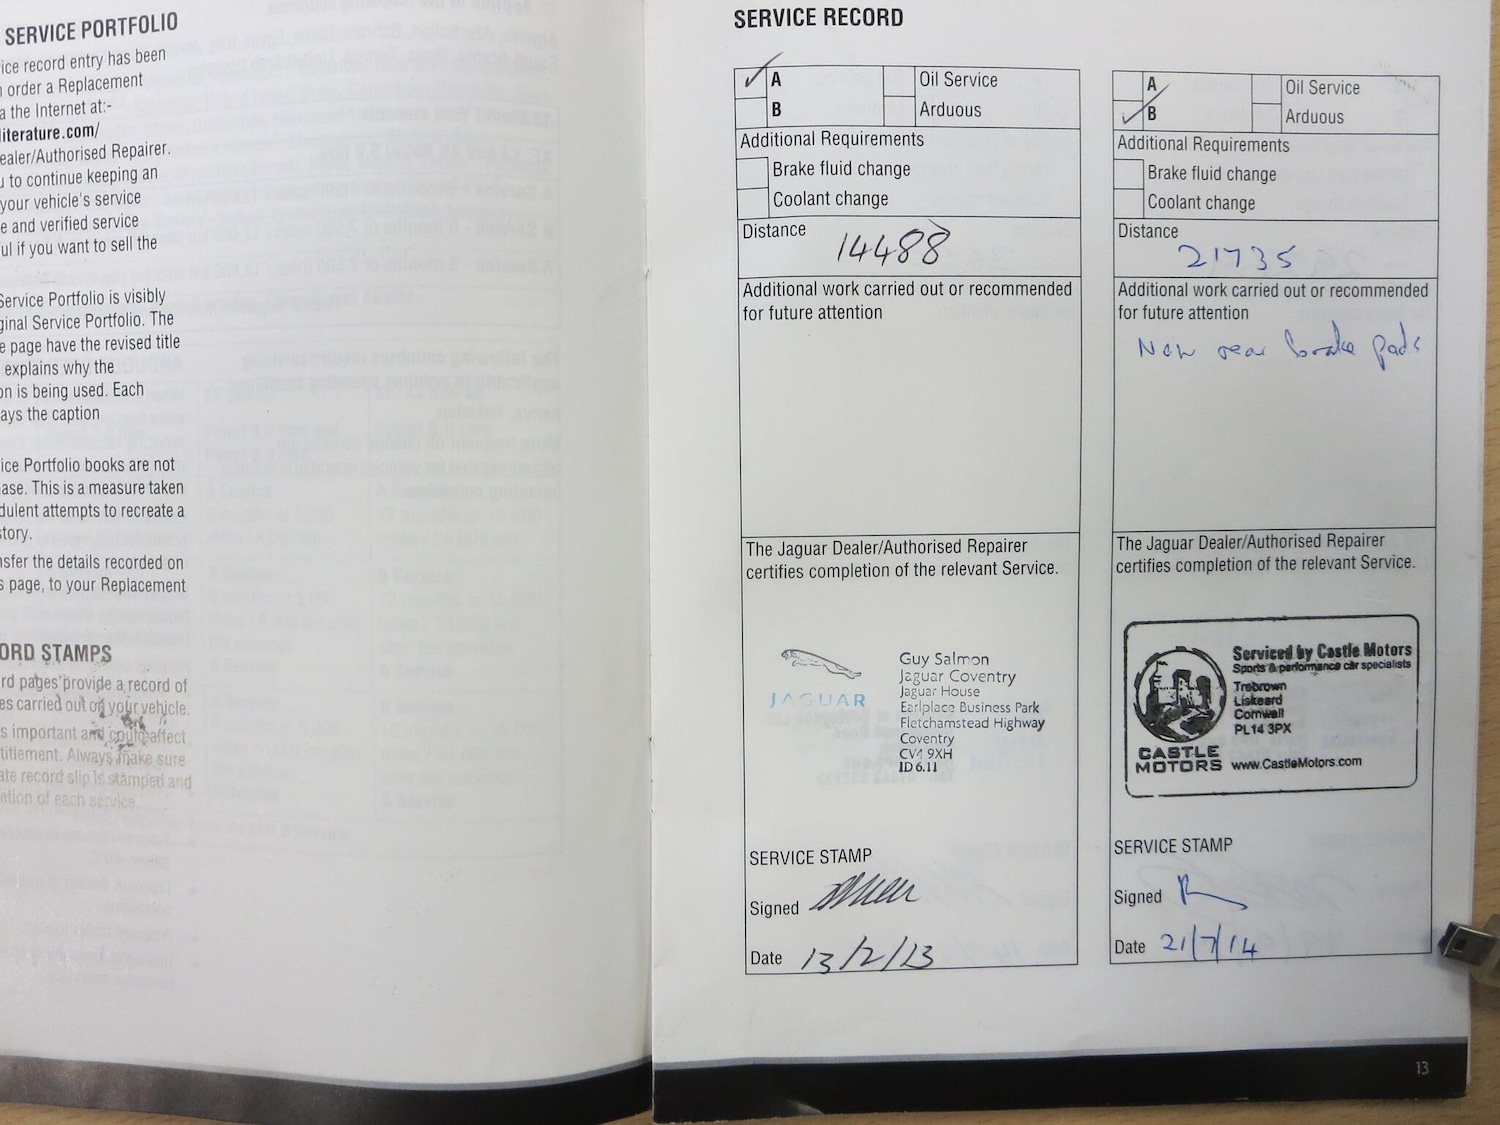 SERVICE PORTFOLIO
ice record entry has been
order a Replacement
a the Internet at:-
literature.com/
ealer/Authorised Repairer.
u to continue keeping an
your vehicle's service
e and verified service
ul if you want to sell the
Service Portfolio is visibly
ginal Service Portfolio. The
e page have the revised title
explains why the
on is being used. Each
ays the caption
ice Portfolio books are not
ase. This is a measure taken
dulent attempts to recreate a
story.
nsfer the details recorded on
s page, to your Replacement
ORD STAMPS
rd pages provide a record of
es carried out on your vehicle.
s important and could affect
titlement. Always make sure
ate record slip is stamped and
etion of each service.
SERVICE RECORD
A Oil Service
B Arduous
Additional Requirements
Brake fluid change
Coolant change
Distance 14488
Additional work carried out or recommended
for future attention
The Jaguar Dealer/Authorised Repairer
certifies completion of the relevant Service.
JAGUAR
Guy Salmon
Jaguar Coventry
Jaguar House
Earlplace Business Park
Fletchamstead Highway
Coventry
CV4 9XH
ID 6.11
SERVICE STAMP
Signed
Date 13/2/13
A Oil Service
B Arduous
Additional Requirements
Brake fluid change
Coolant change
Distance
21735
Additional work carried out or recommended
for future attention
New rear brake pads
The Jaguar Dealer/Authorised Repairer
certifies completion of the relevant Service.
Serviced by Castle Motors
Sports & performance car specialists
Trebrown
Liskeard
Cornwall
PL14 3PX
CASTLE
MOTORS www.CastleMotors.com
SERVICE STAMP
Signed
Date 21/7/14
13